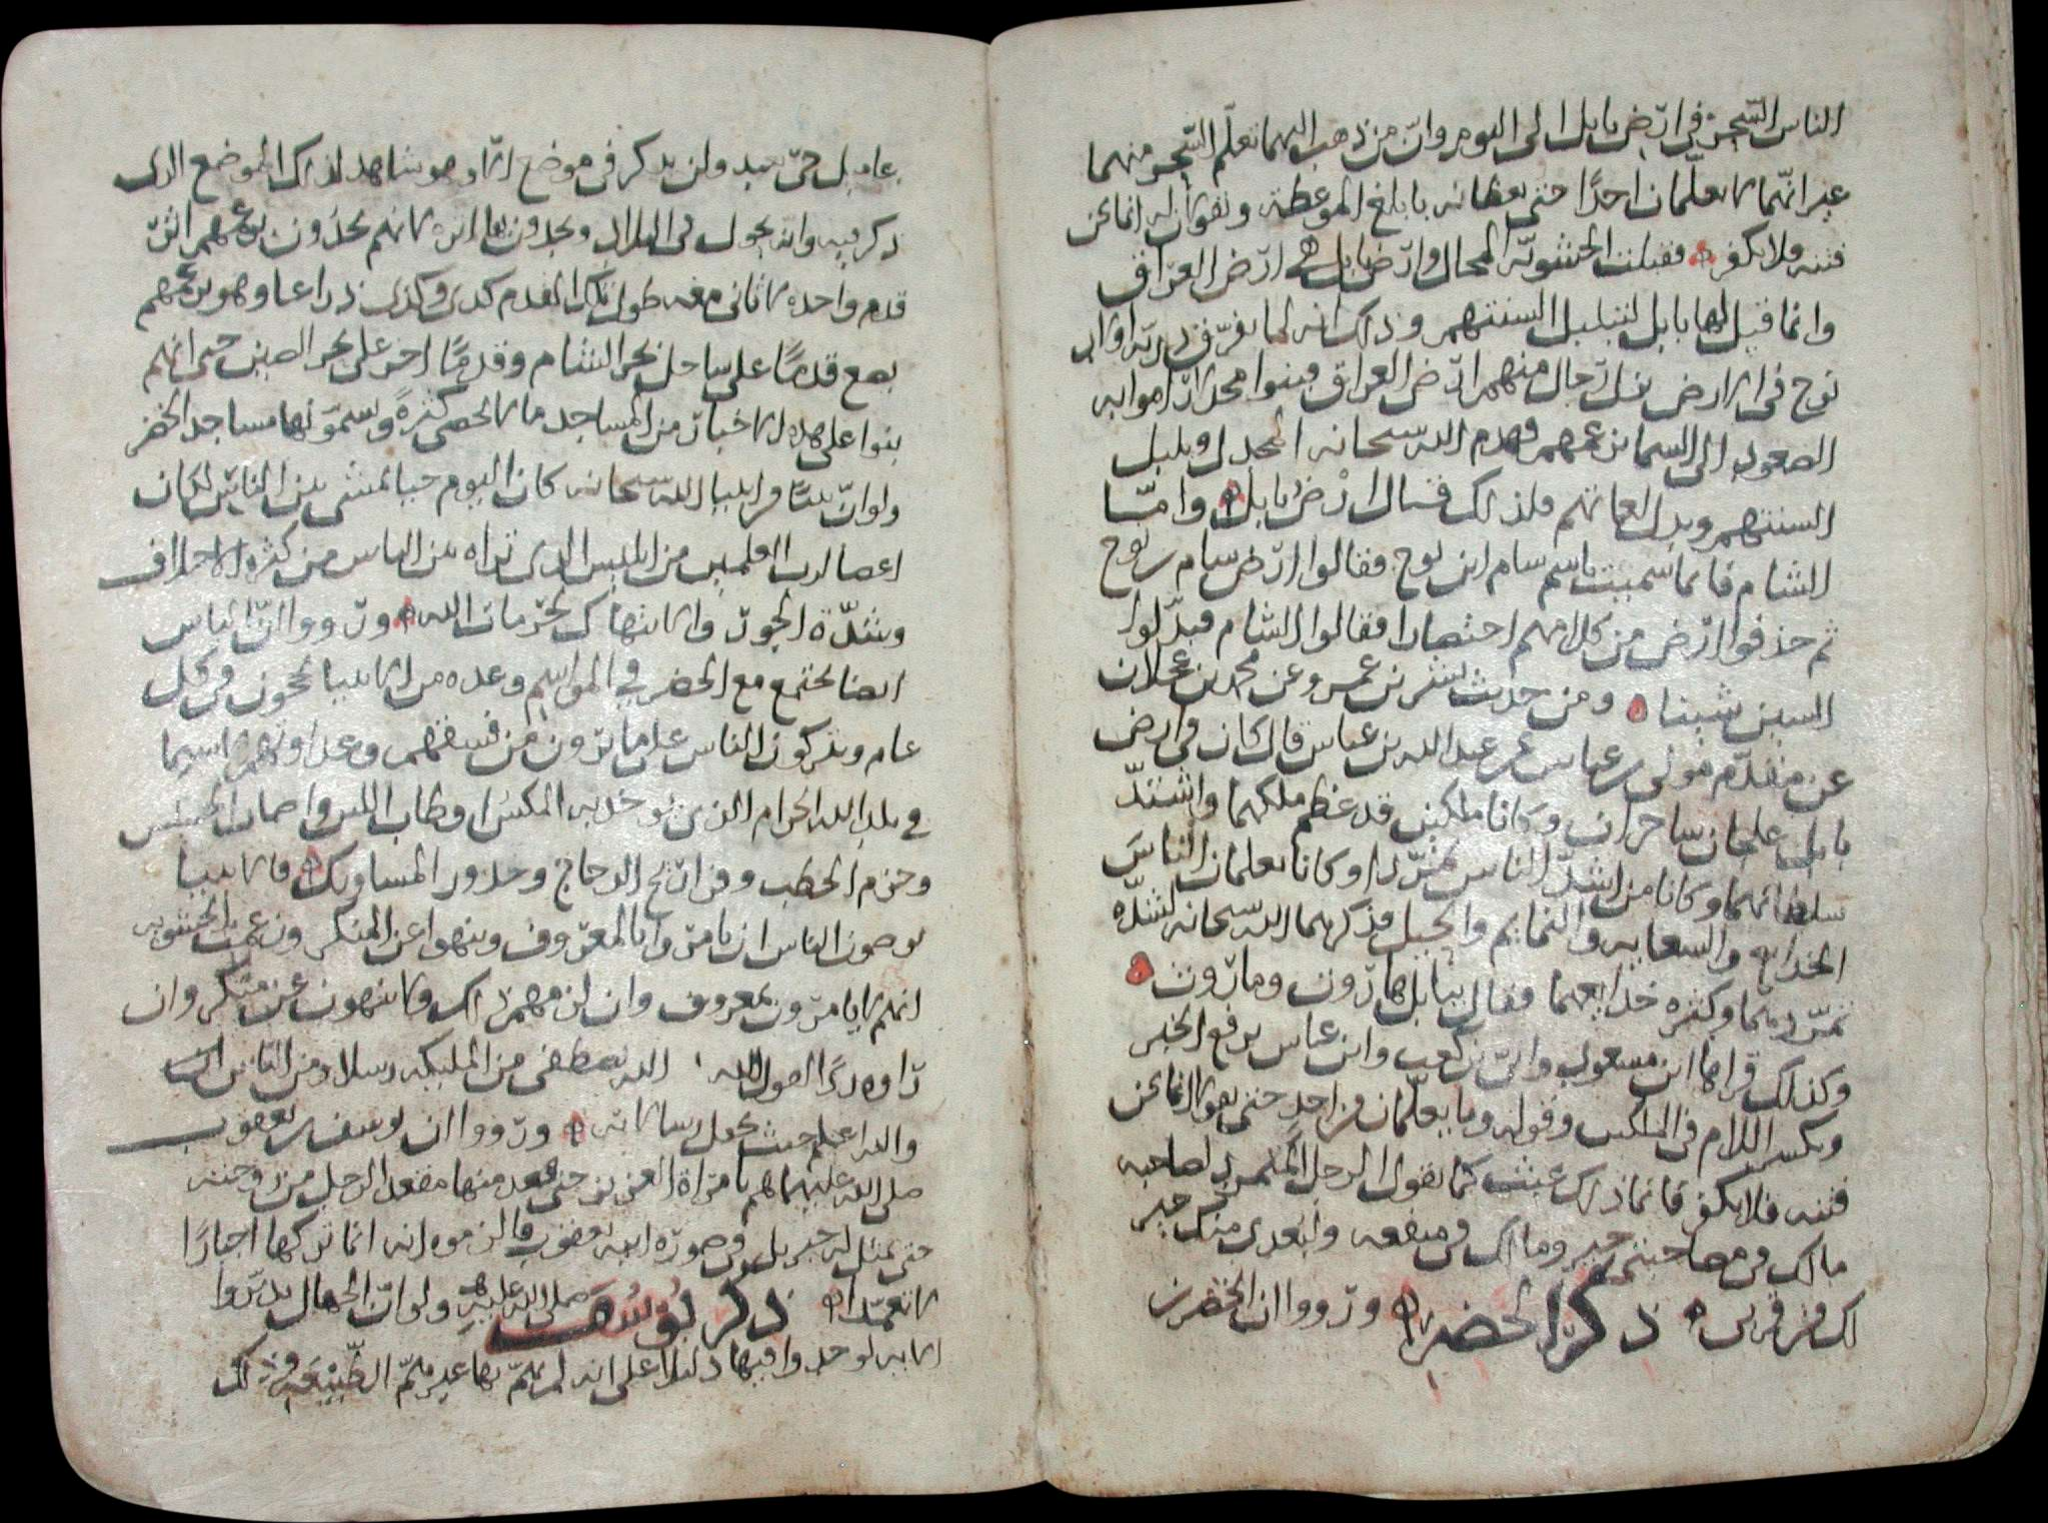 الناس السّحر في ارض بابل الى اليوم وانّ من ذهب اليهما تعلّم السّحر منهما
غير انّهما لا يعلّمان احدًا حتى يعظانه بابلغ الموعظة ويقولان له انما نحن
فتنه فلا تكفر فقبلت الحشويّه المحال وارض بابل هي ارض العراق
وانما قيل لها بابل لتبلبل السنتهم وذلك انه لما تفرّق ذريّه اولاد
نوح في الارض نزل رجال منهم ارض العراق فبنوا مجدلا راموا به
الصعود الى السما بزعمهم فهدم الله سبحانه المجدل وبلبل
السنتهم وبدل لغاتهم فلذلك قيل ارض بابل وامّا
الشام فانما سميت باسم سام ابن نوح فقالوا ارض سام بن نوح
ثم حذفوا ارض من كلامهم اختصارا فقالوا الشام فبدّلوا
السين شينا ومن حديث بشر بن عمر وعن محمد بن عجلان
عن مقدّم مولى بن عباس عن عبد الله بن عباس قال كان في ارض
بابل علجان ساحران وكانا ملكين قد عظم ملكهما واشتدّ
سلطانهما وكانا من اشدّ الناس تمرّدا وكانا يعلمان الناس
الخدايع والسعايه والنمايم والحيل فذكرهما الله سبحانه لشدّه
تمرّدهما وكثره خدايعهما فقال ببابل هاروت وماروت
وكذلك قراها ابن مسعود وابيّ بن كعب وابن عباس يرفع الخبر
وبكسر اللام في الملكين وقوله وما يعلّمان من احدٍ حتى يقولا انما نحن
فتنه فلا تكفر فانما ذلك عبث كما يقول الرجل المتمرد لصاحبه
مالك في مصاحبتي خير ومالك في منفعه وابعدى منك خير
لك من قربى ذكر الخضر ورووا ان الخضر بن
عاميل حيّ يعبد ولن يذكر في موضع الا وهو شاهد لذلك الموضع الذى
ذكر فيه وانه يجول في البلاد ويجدون اثاره كانهم يجدون بزعمهم اثر
قدم واحده لا ثانى معه طول تلك القدم كذى وكذى ذراعا وهو بزعمهم
يضع قدمًا على ساحل بحر الشام وقدمًا اخر على بحر الصين حتى انهم
بنوا على هذه الاخبار من المساجد ما لا يحصى كثرةً ويسمّونها مساجد الخضر
ولو انّ نبيًّا من انبيا الله سبحانه كان اليوم حيا يمشى بين الناس لكان
اغضا لرب العلمين من ابليس الذى تراه بين الناس من كثره الاختلاف
وشدّة الجور والانتهاك لحرمات الله ورووا انّ الياس
ايضا يجتمع مع الخضر في المواسم وعده من الانبيا يحجون في كل
عام ويتركون الناس على ما يرون من فسقهم وعداوتهم لا سيما
في بلد الله الحرام الذى يوخذ به المكس
وحزم الحطب وفراريج الدجاج المساويك فالانبيا
يوصون الناس ان يامروا بالمعروف وينهوا عن المنكر وزعمت الحشويه
انهم لا يامرون بمعروف وان لزمهم ذلك ولا ينهون عن منكر وان
راوه ردًا لقول الله الله يصطفى من المليكه رسلا ومن الناس
والله اعلم حيث يجعل رسالاته ورووا ان يوسف بن يعقوب
صلى الله عليهما هم بامراة العزيز حتى قعد منها مقعد الرجل من زوجته
حتى تمثل له جبريل في صورة ابيه يعقوب فالزموه انه انما تركها اجبارًا
لا تعمّدا ذكر يوسف صلى الله عليه ولو انّ الجهال تدبّروا
الايه لوجدوا فيها دليلا على انه لم يهمّ بها غير همّ الطّبيعه وذلك